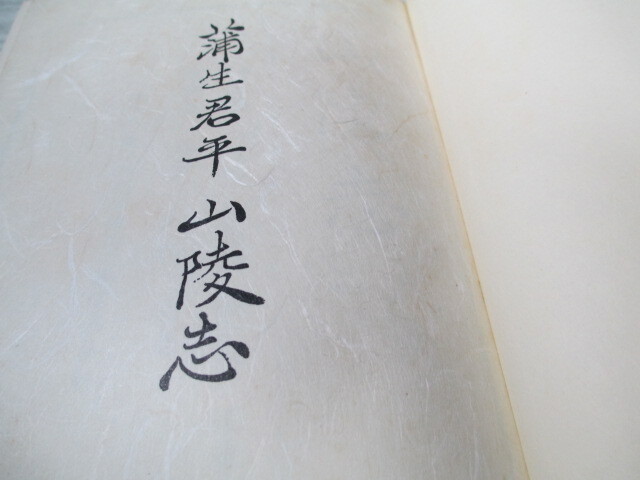 蒲生君平 山陵志